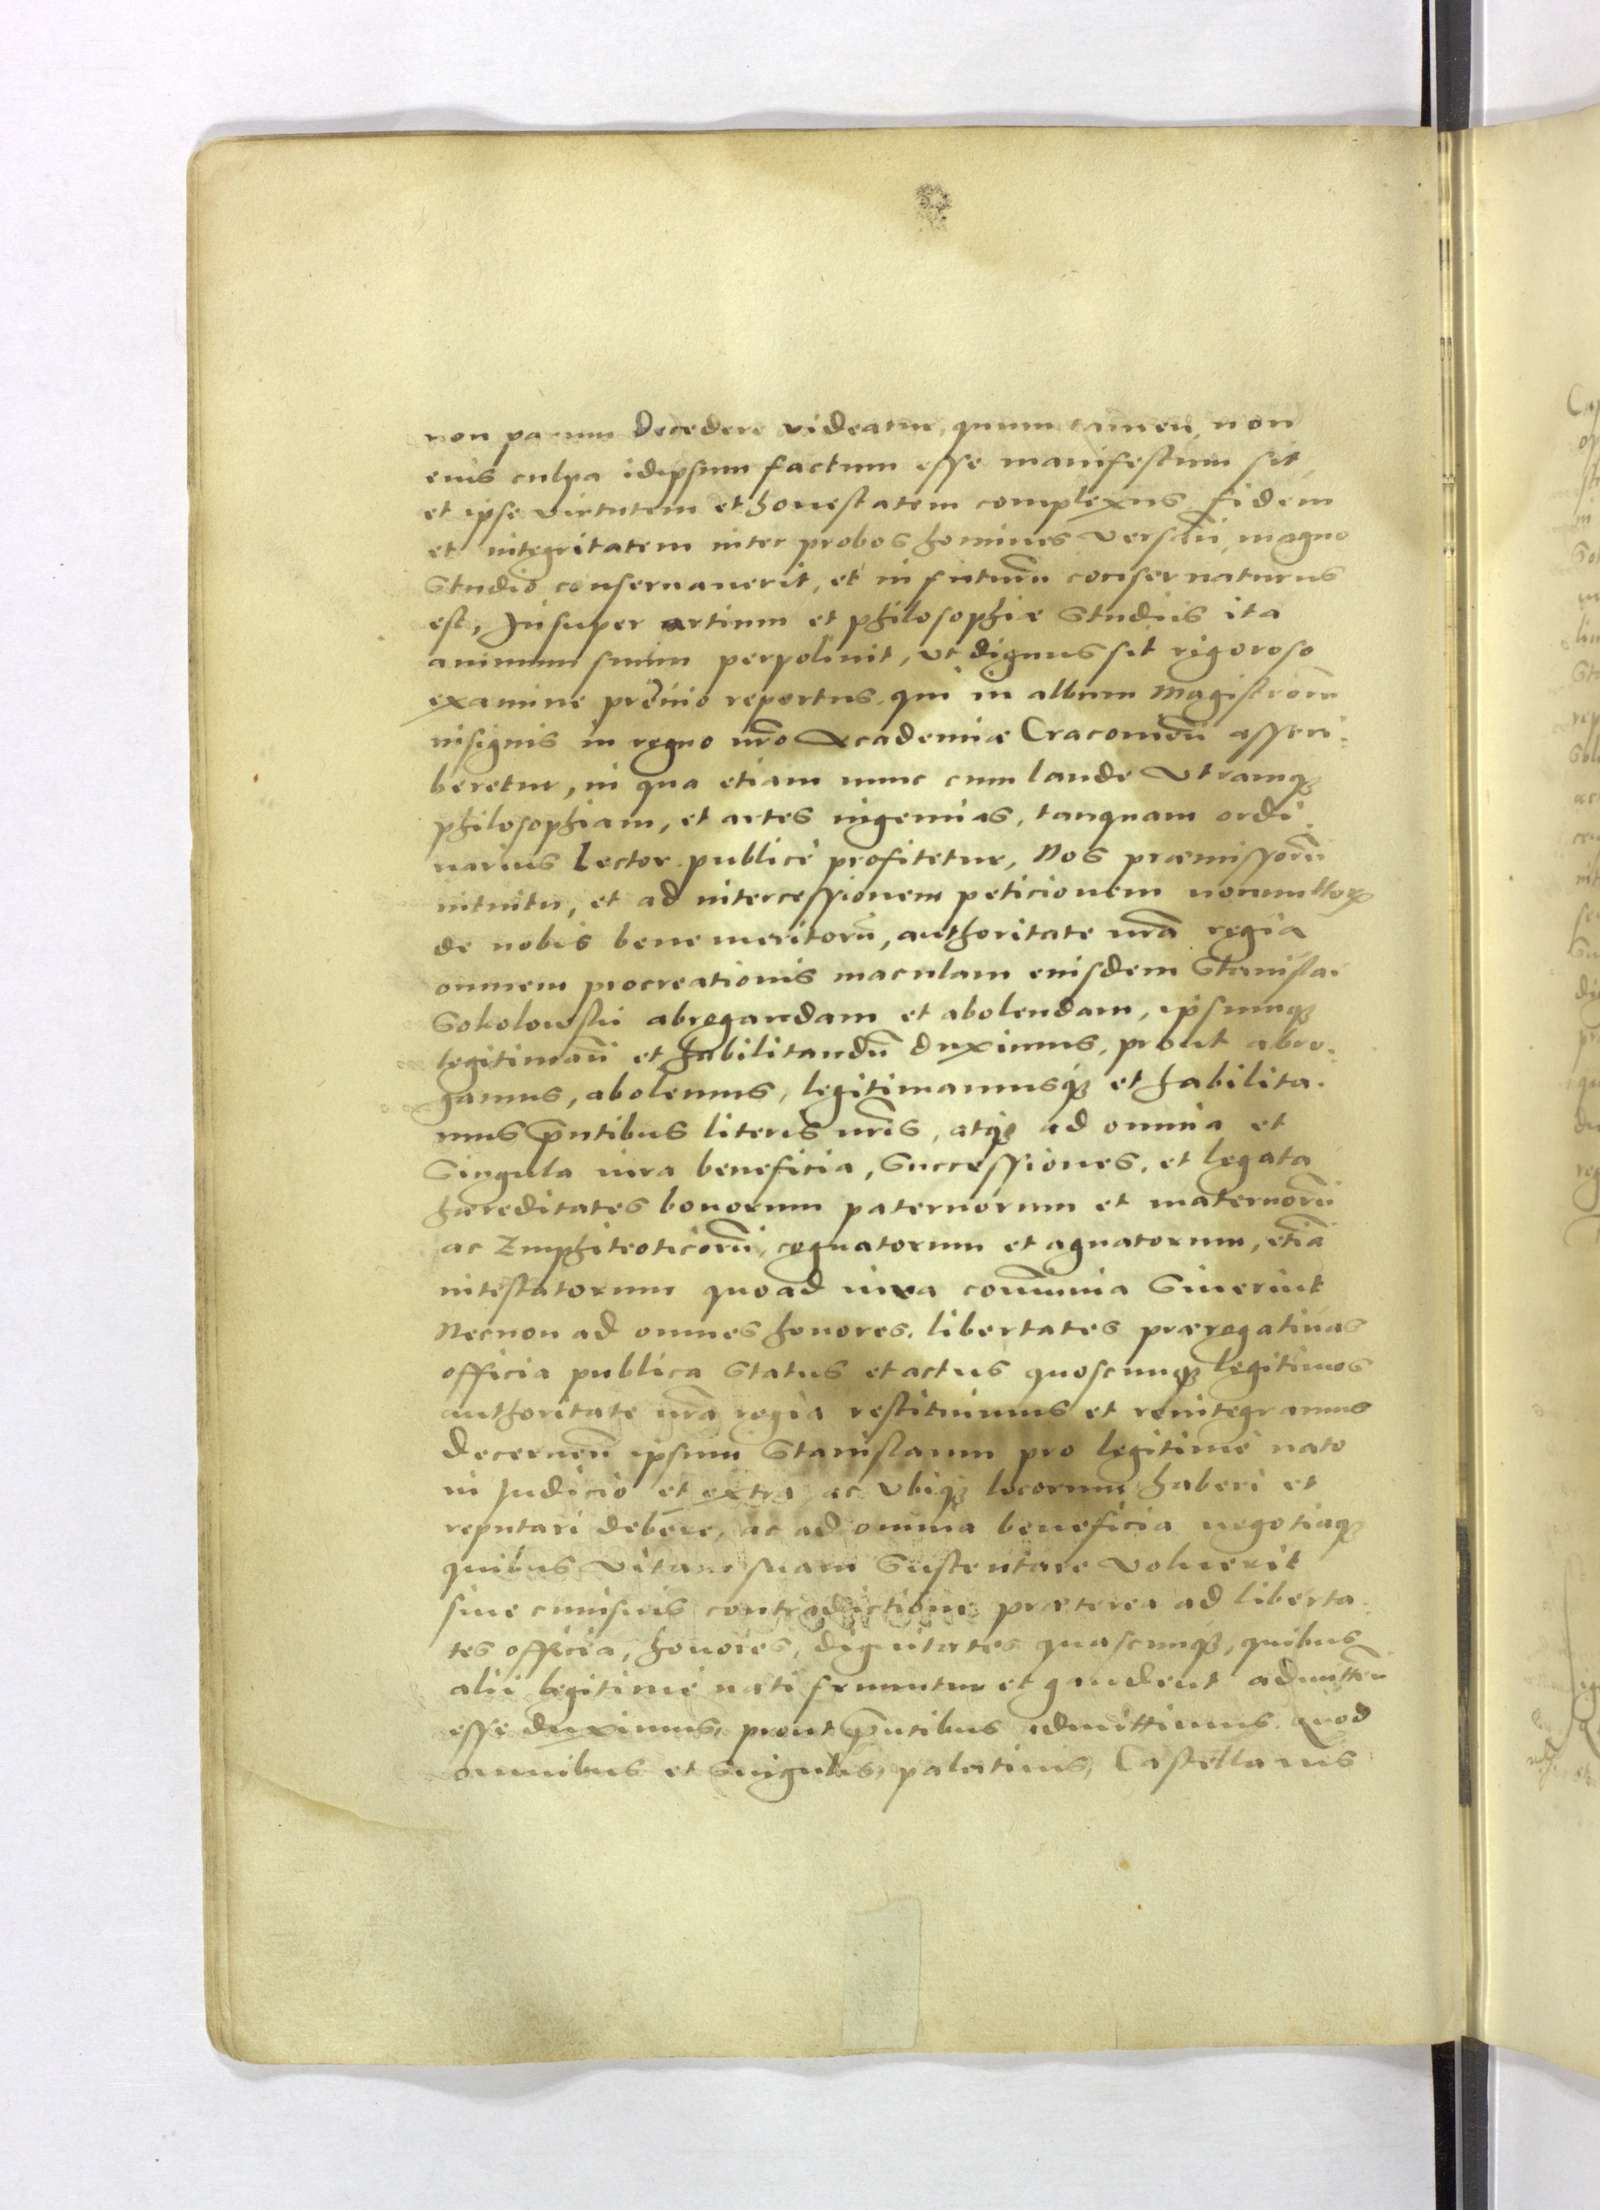 non parum decedere videatur, quum tamen non
eius culpa idipsum factum esse manifestum sit,
et ipse virtutem et honestatem complexus fidem
et integritatem inter probos homines versan̄ magno
studio conservaverit, et in futurum conservaturus
est, Insuper artium et philosophiæ studiis ita
animum suum perpolivit, ut dignus sit rigoroso
examine prævio repertus qui in album Magistrorū
insignis in regno nr̄o Academiæ Cracovien̄ asscri¬
beretur, in qua etiam nunc cum laude utramq₃
philosophiam, et artes ingenuas, tanquam ordi¬
narius lector publicè profitetur, Nos præmissorū
intuitu, et ad intercessionem peticionem nonnullorꝝ
de nobis bene meritorū, authoritate nr̄a regia
omnem procreationis maculam eiusdem Stanislai
Sokolowski abrogandam et abolendam, ipsumq₃
legitiman̄ et habilitandū duximus, prout abro¬
gamus, abolemus, legitimamusq₃ et habilita¬
mus p̄ntibus literis nr̄is, atq₃ ad omnia et
singula iura beneficia, successiones, et legata
hæreditates bonorum paternorum et maternorū
ac Emphiteoticorū, cognatorum et agnatorum, etiā
intestatorum quoad iura com̄unia siverint
Necnon ad omnes honores, libertates prærogativas
officia publica status et actus quoscunq₃ legitimos
authoritate nr̄a regia restituimus et reintegramus
Decernen̄ ipsum Stanislaum pro legitimè nato
in Judicio et extra ac ubiq₃ locorum haberi et
reputari debere, ac ad omnia beneficia negotiaq₃
quibus vitam suam sustentare voluerit
sine cuiusvis contradictione præterea ad liberta¬
tes officia, honores, dignitates quascunq₃, quibus
alii legitimè nati fruuntur et gaudent admitten̄
esse duximus, prout p̄ntibus admittimus. Quod
omnibus et singulis, palatinis, Castellanis